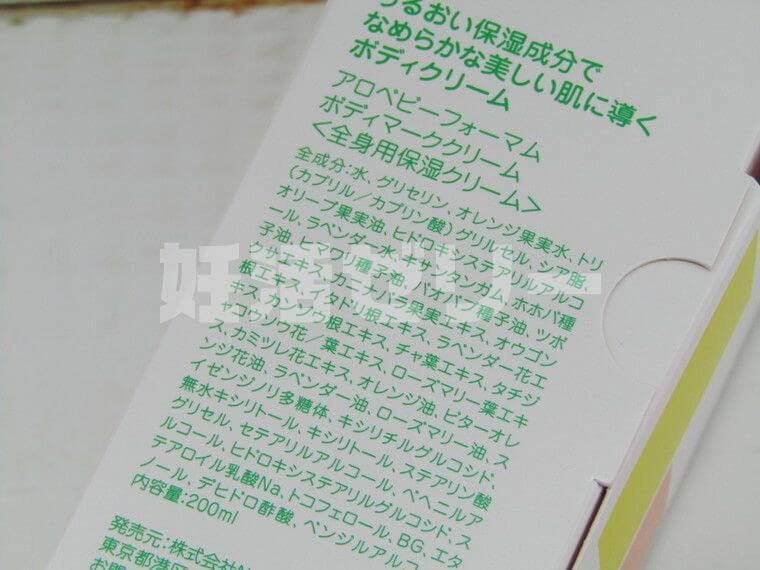 うるおい保湿成分で
なめらかな美しい肌に導く
ボディクリーム
アロベビーフォーマム
ボディマーククリーム
<全身用保湿クリーム>
全成分:水、グリセリン、オレンジ果実水、トリ
(カプリル/カプリン酸)グリルセル、シア脂、
オリーブ果実油、ヒドロキシステアリルアルコ
ール、ラベンダー水、キサンタンガム、ホホバ種
子油、ヒマワリ種子油、バオバブ種子油、ツボ
クサエキス、カニナバラ果実エキス、オウゴン
根エキス、イタドリ根エキス、ラベンダー花エ
キス、カンゾウ根エキス、チャ葉エキス、タチジ
ャコウソウ花/葉エキス、ローズマリー葉エキ
ス、カミツレ花エキス、オレンジ油、ビターオレ
ンジ花油、ラベンダー油、ローズマリー油、ス
イゼンジノリ多糖体、キシリチルグルコシド、
無水キシリトール、キシリトール、ステアリン酸
グリセル、セテアリルアルコール、ベヘニルア
ルコール、ヒドロキシステアリルグルコシド、ス
テアロイル乳酸Na、トコフェロール、BG、エタ
ノール、デヒドロ酢酸、ベンジルアルコ
内容量:200ml
発売元:株式会社
東京都港区
お問
妊活ゼリー